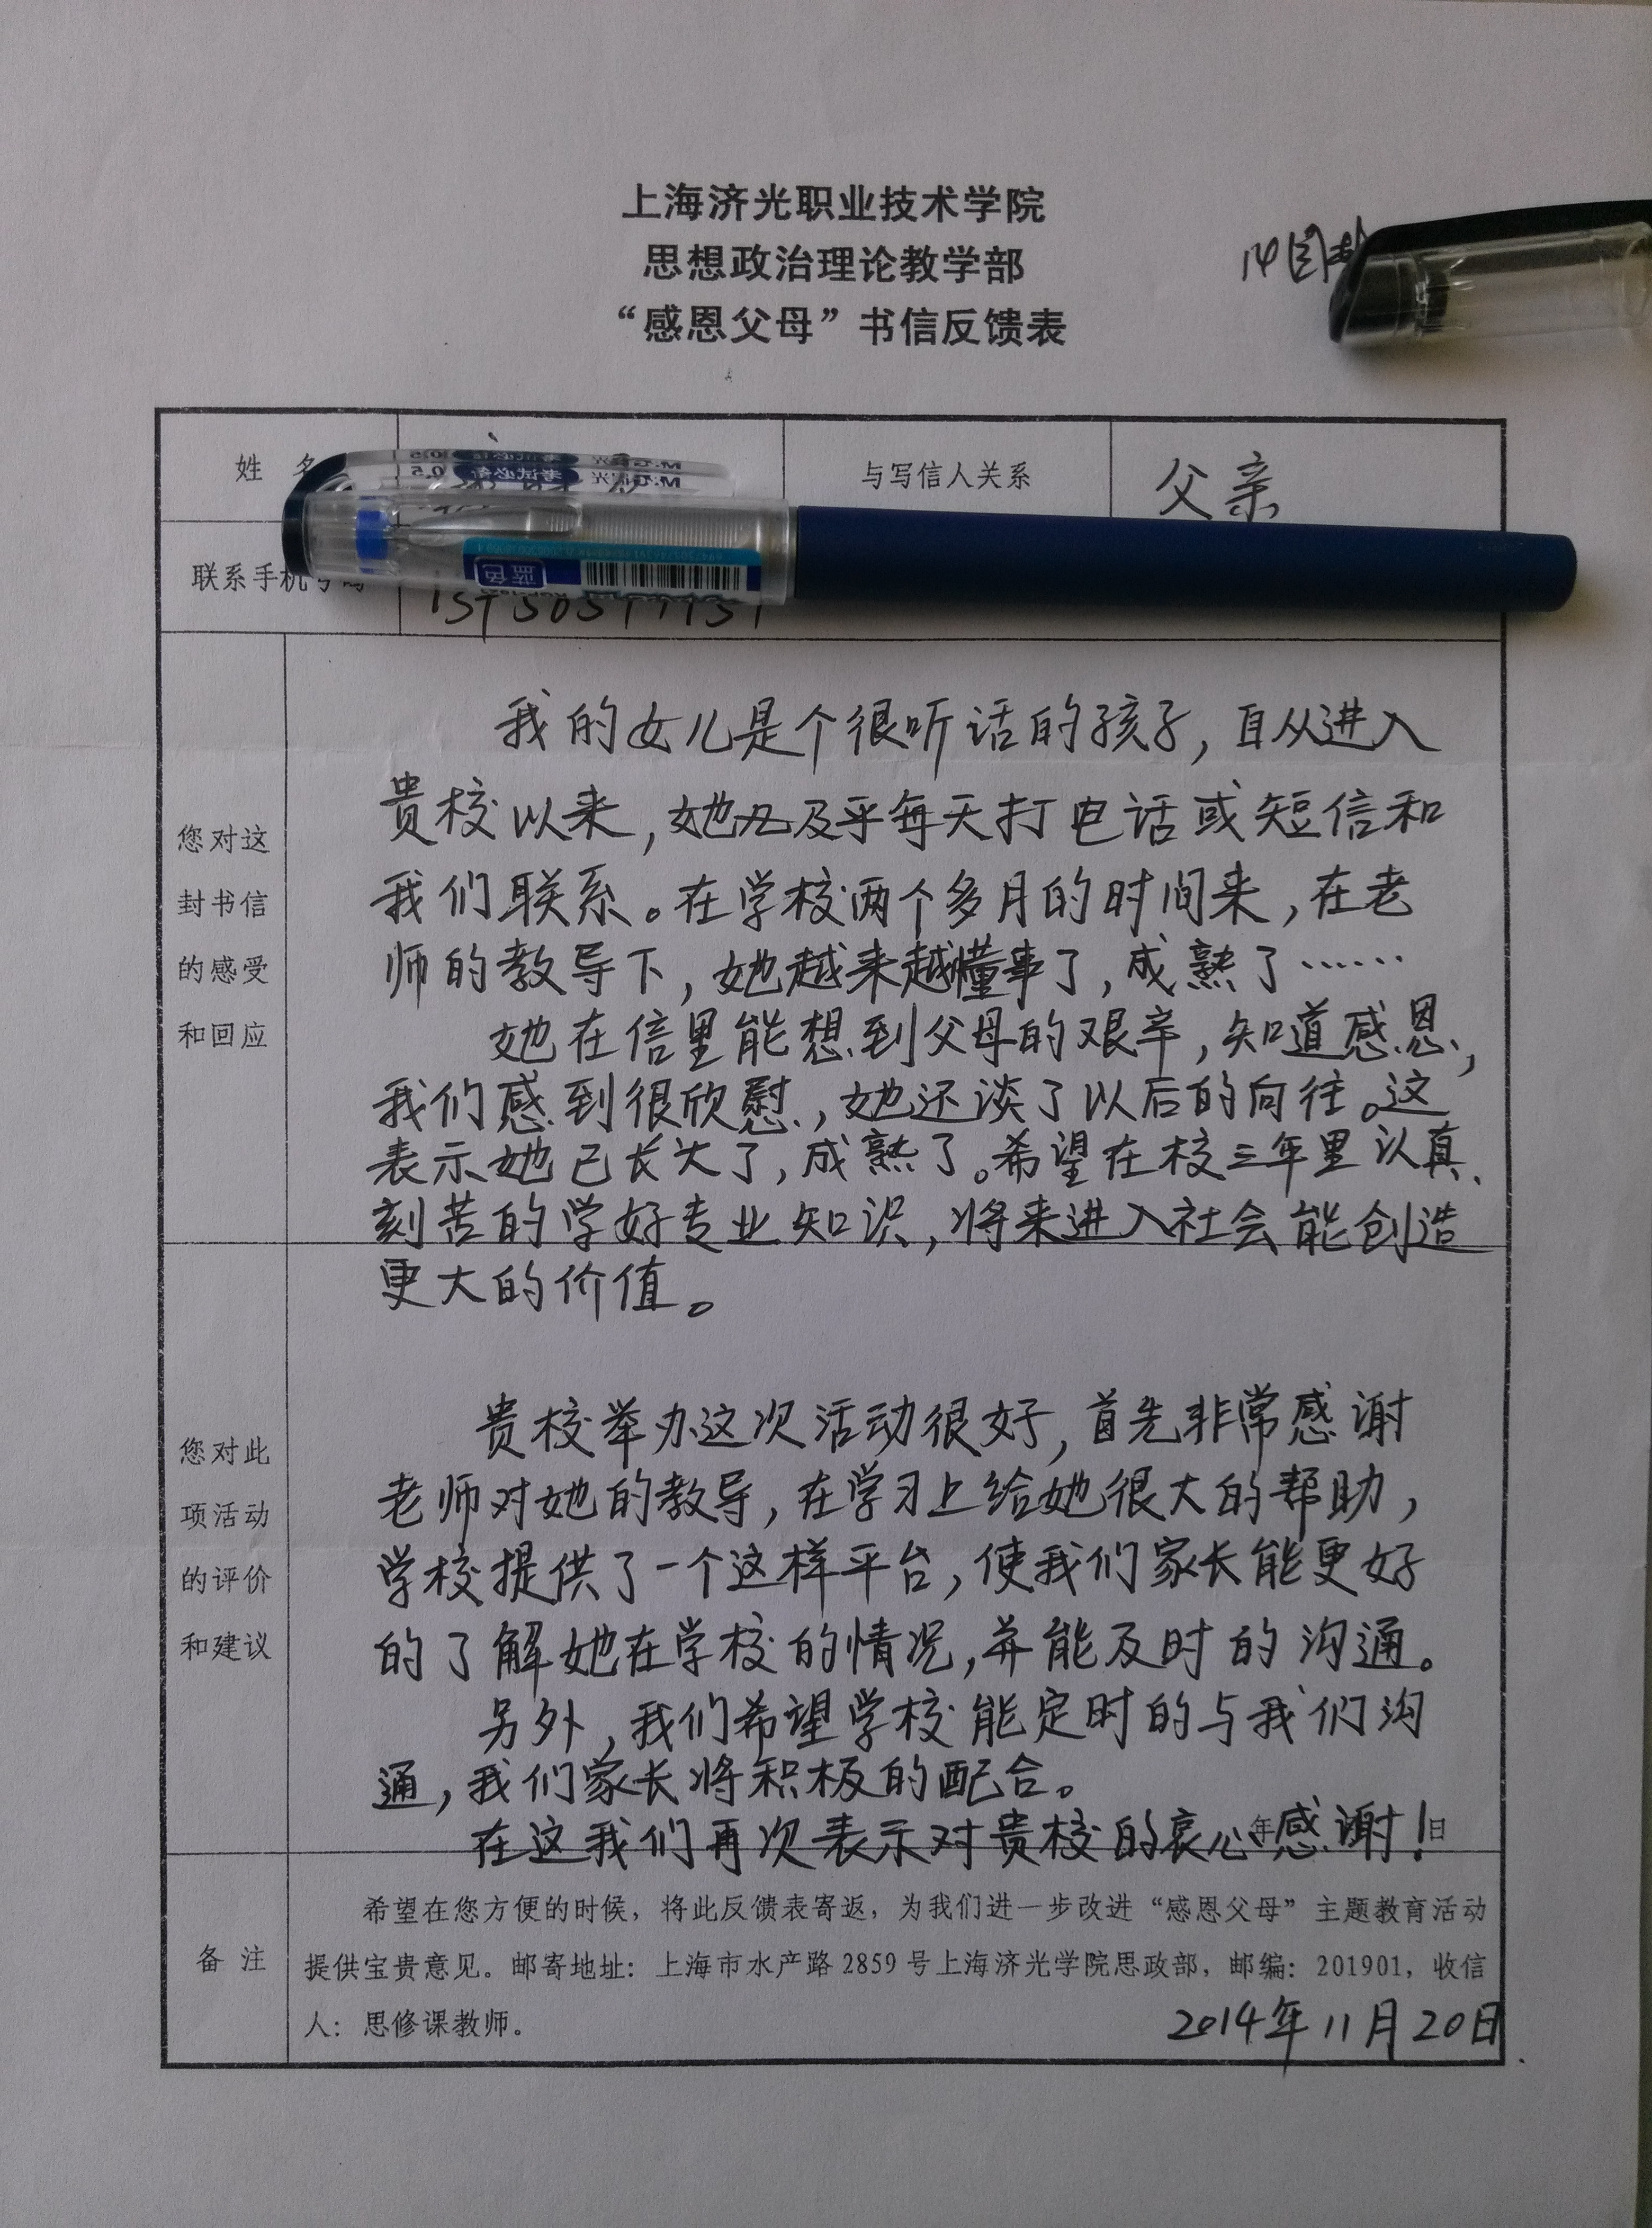 上海济光职业技术学院
思想政治理论教学部
“感恩父母”书信反馈表
14图
姓 名
与写信人关系
父亲
联系手机号码
蓝色
您对这
封书信
的感受
和回应
我的女儿是个很听话的孩子，自从进入
贵校以来，她及乎每天打电话或短信和
我们联系。在学校两个多月的时间来，在老
师的教导下，她越来越懂事了，成熟了……
她在信里能想到父母的艰辛，知道感恩，
我们感到很欣慰，她还谈了以后的向往。这
表示她已长大了，成熟了。希望在校三年里认真、
刻苦的学好专业知识，将来进入社会能创造
更大的价值。
您对此
项活动
的评价
和建议
贵校举办这次活动很好，首先非常感谢
老师对她的教导，在学习上给她很大的帮助，
学校提供了一个这样平台，使我们家长能更好
的了解她在学校的情况，并能及时的沟通。
另外，我们希望学校能定时的与我们沟
通，我们家长将积极的配合。
在这我们再次表示对贵校的衷心感谢！
年 日
备 注
希望在您方便的时候，将此反馈表寄返，为我们进一步改进“感恩父母”主题教育活动
提供宝贵意见。邮寄地址：上海市水产路 2859 号上海济光学院思政部，邮编：201901，收信
人：思修课教师。
2014年11月20日